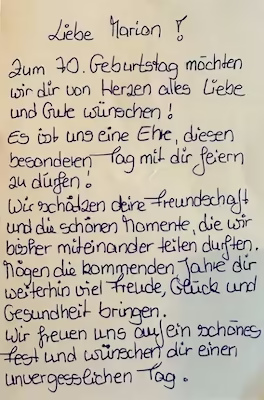 Liebe Marion !
Zum 70. Geburtstag möchten
wir dir von Herzen alles Liebe
und Gute wünschen !
Es ist uns eine Ehre, diesen
besonderen Tag mit dir feiern
zu dürfen !
Wir schätzen deine Freundschaft
und die schönen Momente, die wir
bisher miteinander teilen durften.
Mögen die kommenden Jahre dir
weiterhin viel Freude, Glück und
Gesundheit bringen.
Wir freuen uns auf ein schönes
Fest und wünschen dir einen
unvergesslichen Tag.